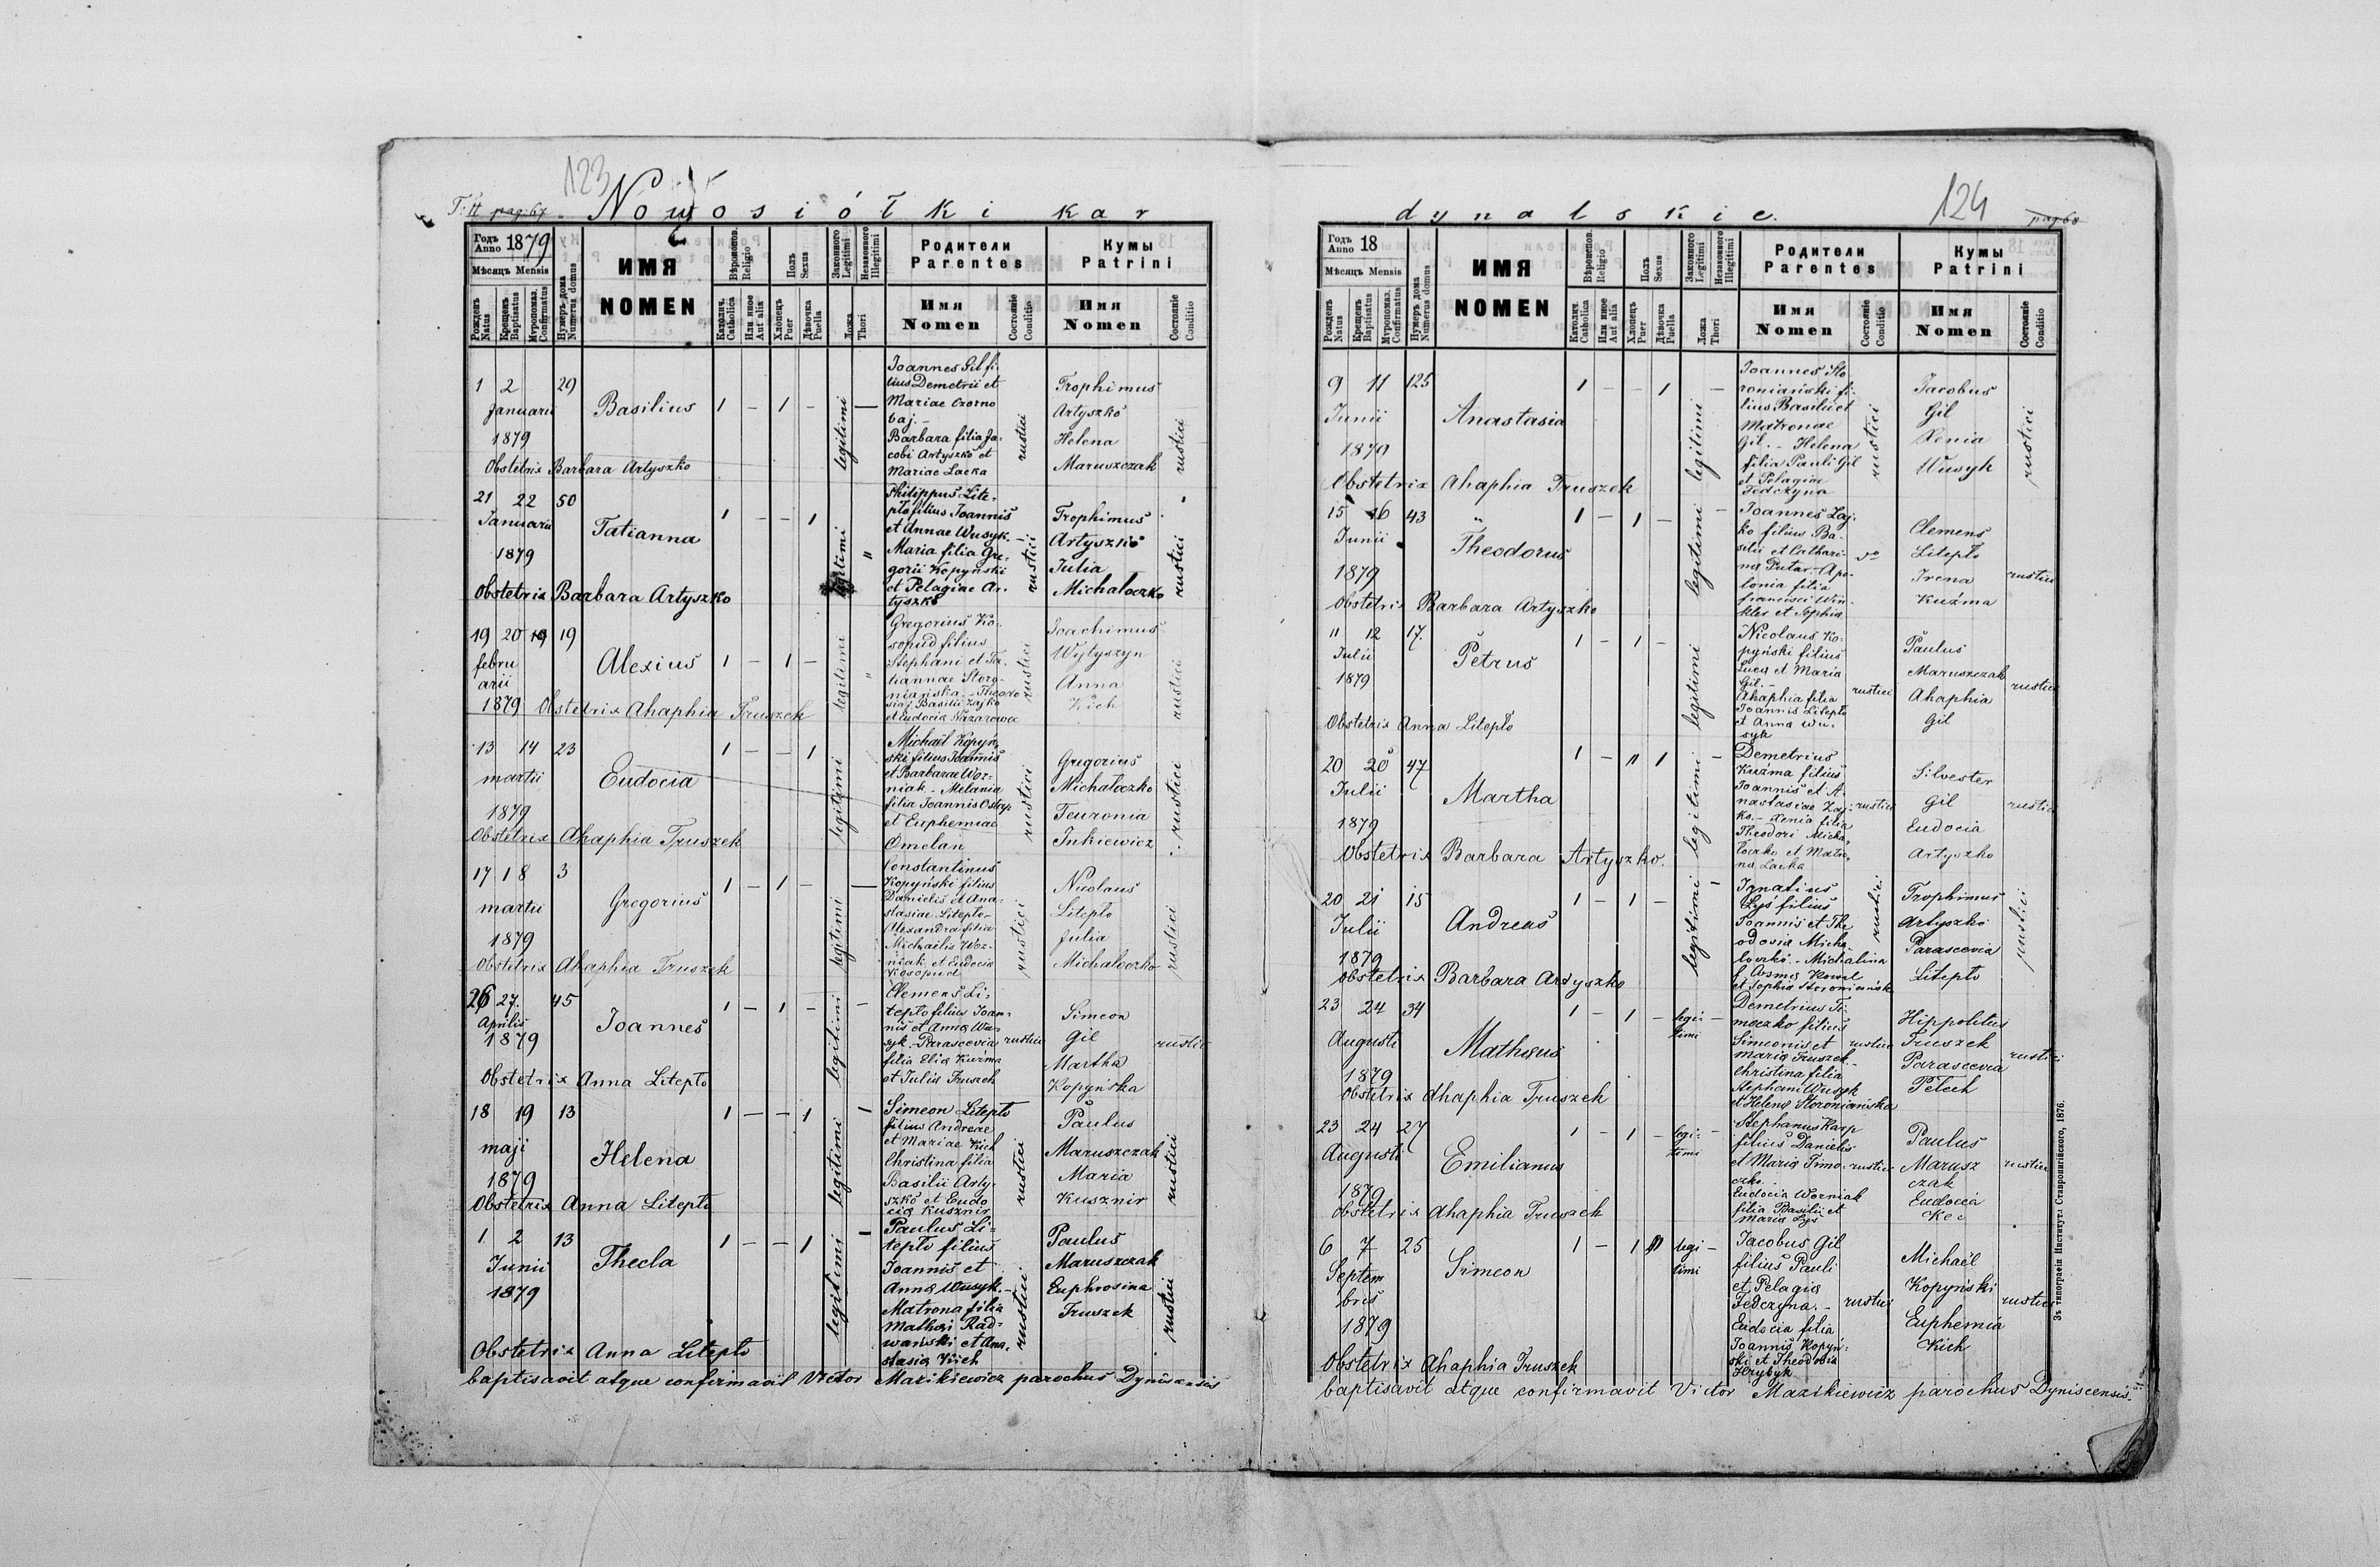 123
T. II pag. 67 Nowosiółki kar
Годъ Anno 1879
Мѣсяцъ Mensis
Рожденъ Natus
Крещенъ Baptisatus
Мѵропомаз. Confirmatus
Нумеръ дома Numerus domus
ИМЯ
NOMEN
Вѣроисповѣд. Religio
Католич. Catholica
Или иное Aut alia
Полъ Sexus
Хлопецъ Puer
Дѣвочка Puella
Законного Legitimi
Незаконного Illegitimi
Ложа Thori
Родители
Parentes
Имя
Nomen
Состояніе Conditio
Кумы
Patrini
Имя
Nomen
Состояніе Conditio
1 2 29
Januarii
1879
Basilius
1 – 1 –
legitimi –
Joannes Gil fi-
lius Demetrii et
Mariae Czorno
baj. –
Barbara filia Ja-
cobi Artyszko et
Mariae Lacka
rustici
Trophimus
Artyszko
Helena
Maruszczak
rustici
Obstetrix Barbara Artyszko
21 22 50
Januarii
1879
Tatianna
1 – – 1
legitimi "
Philippus Lite-
pło filius Joannis
et Annae Wusyk. –
Maria filia Gre-
gorii Kopyński
et Pelagiae Ar-
tyszko
rustici
Trophimus
Artyszko
Julia
Michałoczko
rustici
Obstetrix Barbara Artyszko
19 20 19
febru
arii
1879
Alexius
1 – 1 –
legitimi "
Gregorius Ko-
sopud filius
Stephani et Ta-
tiannae Storo-
niańska. – Theodo
sia f. Basilii Zajko
et Eudocia Nazarowicz
rustici
Joachimus
Wytyszyn
Anna
Kich
rustici
Obstetrix Ahaphia Truszek
13 14 23
martii
1879
Eudocia
1 – – 1
legitimi
Michaël Kopyń-
ski filius Joannis
et Barbarae Woz-
niak. – Melania
filia Joannis
et Euphemiae
Omelan
rustici
Gregorius
Michałoczko
Feuronia
Inkiewicz
rustici
Obstetrix Ahaphia Truszek
17 18 3
martii
1879
Gregorius
1 – 1 – –
legitimi
Constantinus
Kopyński filius
Danielis et Ana-
stasiae Litepło –
Alexandra filia
Michaëlis Woz-
niak et Eudocia
Kosopud
rustici
Nicolaus
Litepło
Julia
Michałoczko
rustici
Obstetrix Ahaphia Truszek
26 27. 45
Aprilis
1879
Joannes
1 – 1 – –
legitimi
Clemens Li-
tepło filius Joan-
nis et Anna Wu-
syk. – Parascevia
filia Elia Kuźma
et Julia Truszek
rustici
Simeon
Gil
Martha
Kopyńska
rustici
Obstetrix Anna Litepło
18 19 13
maji
1879
Helena
1 – – 1 –
legitimi
Simeon Litepło
filius Andreae
et Mariae Kich
Christina filia
Basilii Arty-
szko et Eudo
cia Kusznir
rustici
Paulus
Maruszczak
Maria
Kusznir
rustici
Obstetrix Anna Litepło
1 2 13
Junii
1879
Thecla
1 – – 1 –
legitimi
Paulus Li-
tepło filius
Joannis et
Anna Wusyk. –
Matrona filia
Mathæi Rad-
wański et Ana-
stasia Kich
rustici
Paulus
Maruszczak
Euphrosina
Truszek
rustici
Obstetrix Anna Litepło
baptisavit atque confirmavit Victor Mazikiewicz parochus Dyniscensis
dynalskie.
124
pag 68
Годъ Anno 18
Мѣсяцъ Mensis
Рожденъ Natus
Крещенъ Baptisatus
Мѵропомаз. Confirmatus
Нумеръ дома Numerus domus
ИМЯ
NOMEN
Вѣроисповѣд. Religio
Католич. Catholica
Или иное Aut alia
Полъ Sexus
Хлопецъ Puer
Дѣвочка Puella
Законного Legitimi
Незаконного Illegitimi
Ложа Thori
Родители
Parentes
Имя
Nomen
Состояніе Conditio
Кумы
Patrini
Имя
Nomen
Состояніе Conditio
9 11 125
Junii
1879
Anastasia
1 – – 1 –
legitimi
Joannes Sto
roniański fi-
lius Basilii et
Matronae
Gil. – Helena
filia Pauli Gil
et Pelagiae
Fedczyna
rustici
Jacobus
Gil
Xenia
Wusyk
rustici
Obstetrix Ahaphia Truszek
15 16 43
Junii
1879
Theodorus
1 – 1 – –
legitimi
Joannes Zaj-
ko filius Ba-
silii et Cathari-
na Putar. – Apo-
lonia filia
francisci Win-
kler et Sophia
Clemens
Litepło
Irena
Kuźma
rustici
Obstetrix Barbara Artyszko
11 12 17.
Julii
1879
Petrus
1 – 1 –
legitimi
Nicolaus Ko-
pyński filius
Luca et Maria
Gil. –
Ahaphia filia
Joannis Litepło
et Anna Wu-
syk
rustici
Paulus
Maruszczak
Ahaphia
Gil
rustici
Obstetrix Anna Litepło
20 20 47
Julii
1879
Martha
1 – 1 –
legitimi
Demetrius
Kuźma filius
Joannis et A-
nastasiae Zaj-
ko. – Xenia filia
Theodori Micha-
łoczko et Matro-
na Lacka
rustici
Silvester
Gil
Eudocia
Artyszko
rustici
Obstetrix Barbara Artyszko.
20 21 15
Julii
1879
Andreas
1 – 1 –
legitimi
Ignatius
Lys filius
Joannis et The
odosia Micha-
łoczko. – Michalina
f. Cosma Kowal
et Sophia Storoniańska
rustici
Trophimus
Artyszko
Parascevia
Litepło
rustici
Obstetrix Barbara Artyszko
23 24 34
Augusti
1879
Mathæus
1 – 1 –
legi- –
timi
Demetrius Ti-
moczko filius
Simeonis et
Maria Truszek –
Christina filia
Stephani Wusyk
et Helena Storoniańska
rustici
Hippolitus
Truszek
Parascevia
Petech
rustici
Obstetrix Ahaphia Truszek
23 24 27
Augusti
1879
Emilianus
1 – 1 –
legi- –
timi
Stephanus Karp
filius Danielis
et Maria Timo-
czko. –
Eudocia Wozniak
filia Basilii et
Maria Lys
rustici
Paulus
Marusz
czak
Eudocia
Kec
rustici
Obstetrix Ahaphia Truszek
6 7 25
Septem
bris
1879
Simeon
1 – 1
legi –
timi
Jacobus Gil
filius Pauli
et Pelagia
Fedczyna. –
Eudocia filia
Joannis Kopyń-
ski et Theodosia
Hrybyk
rustici
Michaël
Kopyński
Euphemia
Kich
rustici
Obstetrix Ahaphia Truszek
baptisavit atque confirmavit Victor Mazikiewicz parochus Dyniscensis.
Зъ типографіи Института Ставропигійского, 1876.